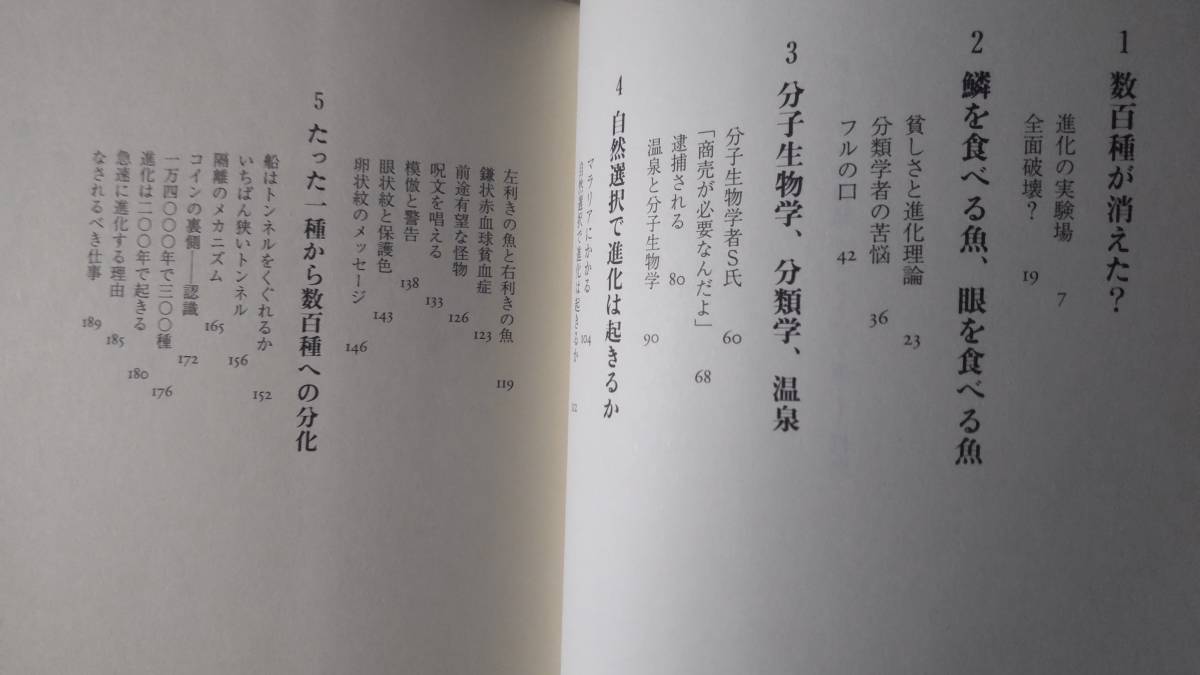 1 数百種が消えた？
進化の実験場 7
全面破壊？ 19
2 鱗を食べる魚、眼を食べる魚
貧しさと進化理論 23
分類学者の苦悩 36
フルの口 42
3 分子生物学、分類学、温泉
分子生物学者S氏 60
「商売が必要なんだよ」 68
逮捕される 80
温泉と分子生物学 90
4 自然選択で進化は起きるか
マラリアにかかる 104
自然選択で進化は起きるか 112
左利きの魚と右利きの魚 119
鎌状赤血球貧血症 123
前途有望な怪物 126
呪文を唱える 133
模倣と警告 138
眼状紋と保護色 143
卵状紋のメッセージ 146
5 たった一種から数百種への分化
船はトンネルをくぐれるか 152
いちばん狭いトンネル 156
隔離のメカニズム 165
コインの裏側——認識 172
一万四〇〇〇年で三〇〇種 176
進化は二〇〇年で起きる 180
急速に進化する理由 185
なされるべき仕事 189